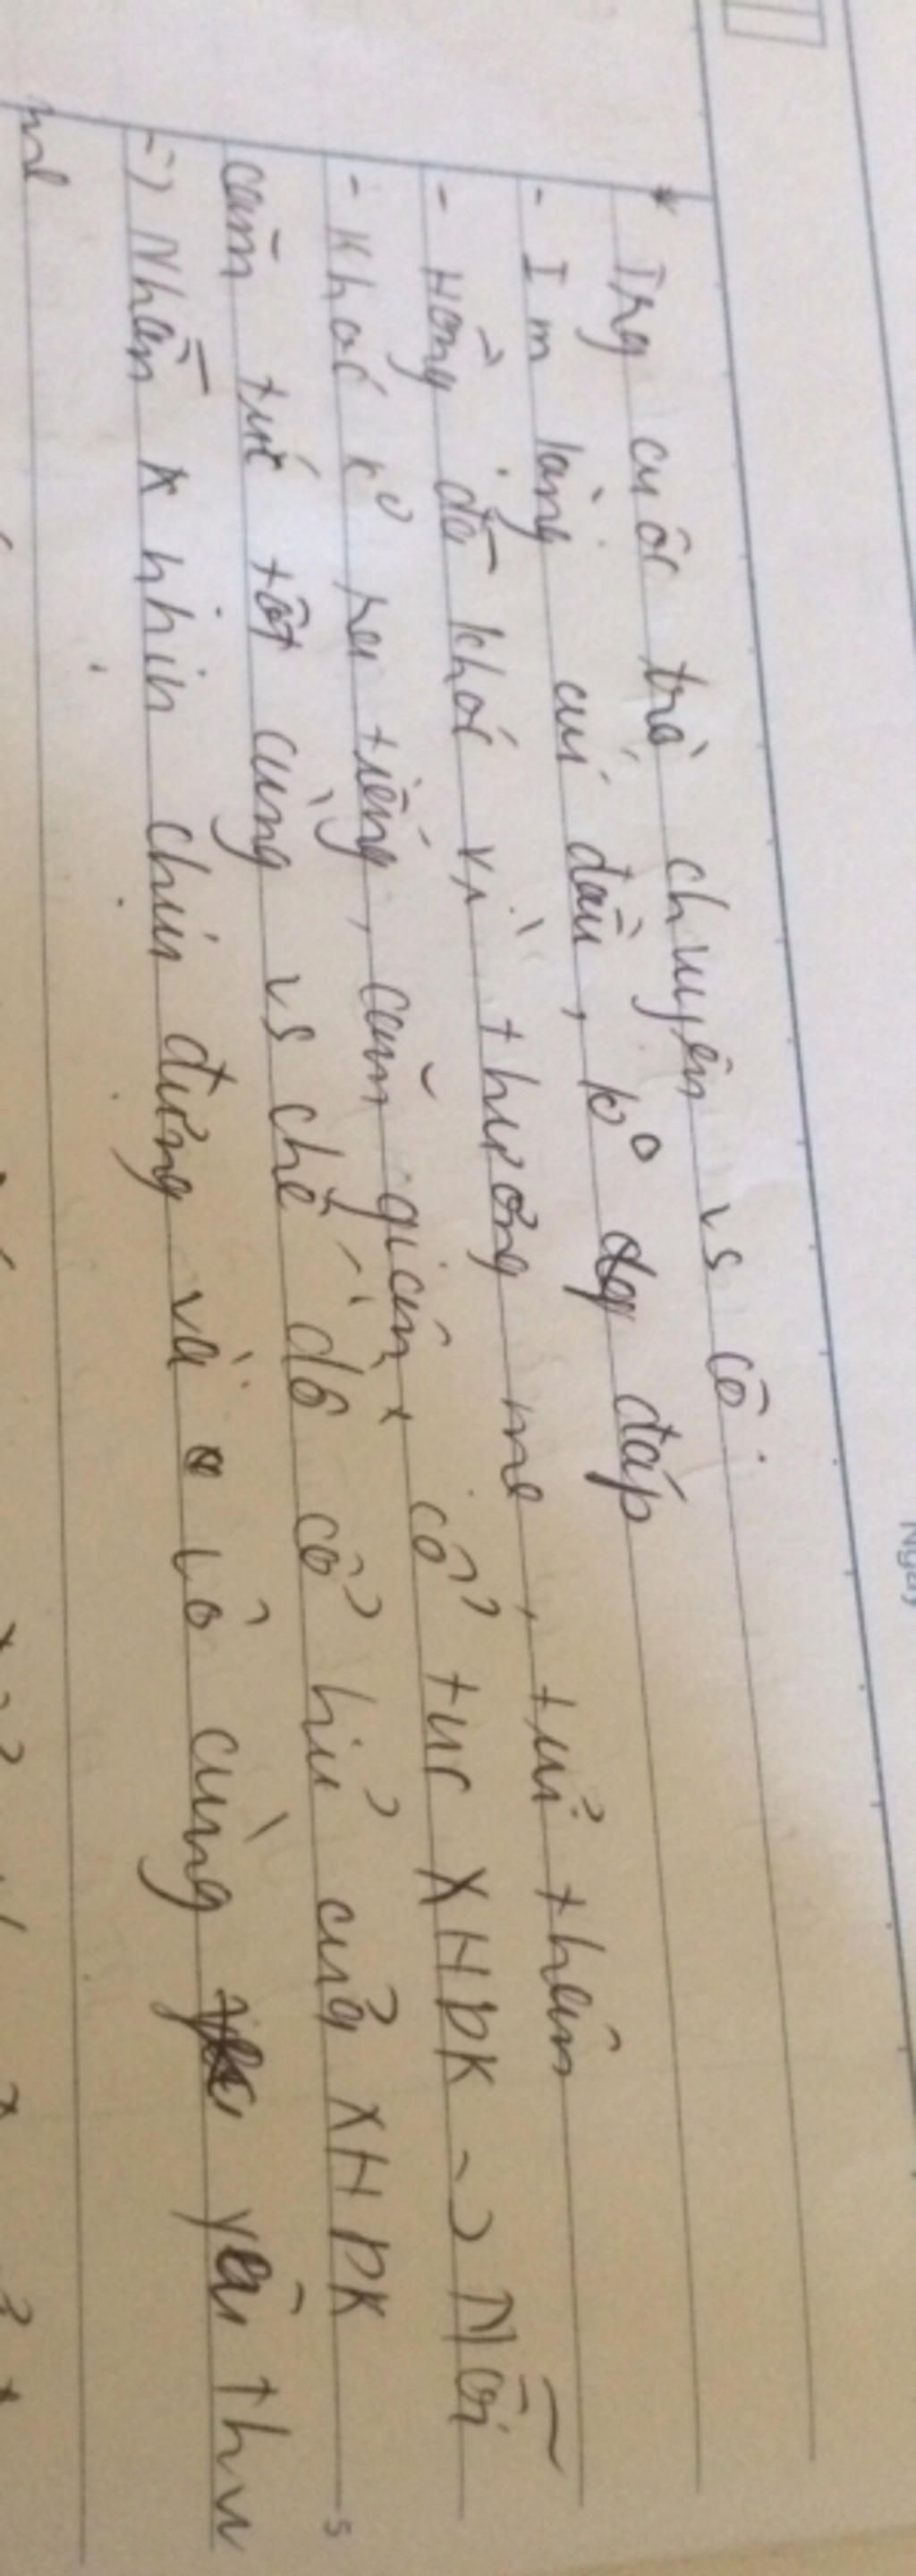 * Trg cuộc trò chuyện vs cô
- Im lặng cúi đầu, k° dg đáp
- Hồng đã khóc vì thương mẹ, tủi thân
- Khóc k° ra tiếng, căm giận cổ tục XHPK -> Nỗi
căm tức tột cùng vs chế độ cổ hủ của XHPK
-> Nhẫn nhịn chịu đựng và vô cùng yêu thư
mẹ